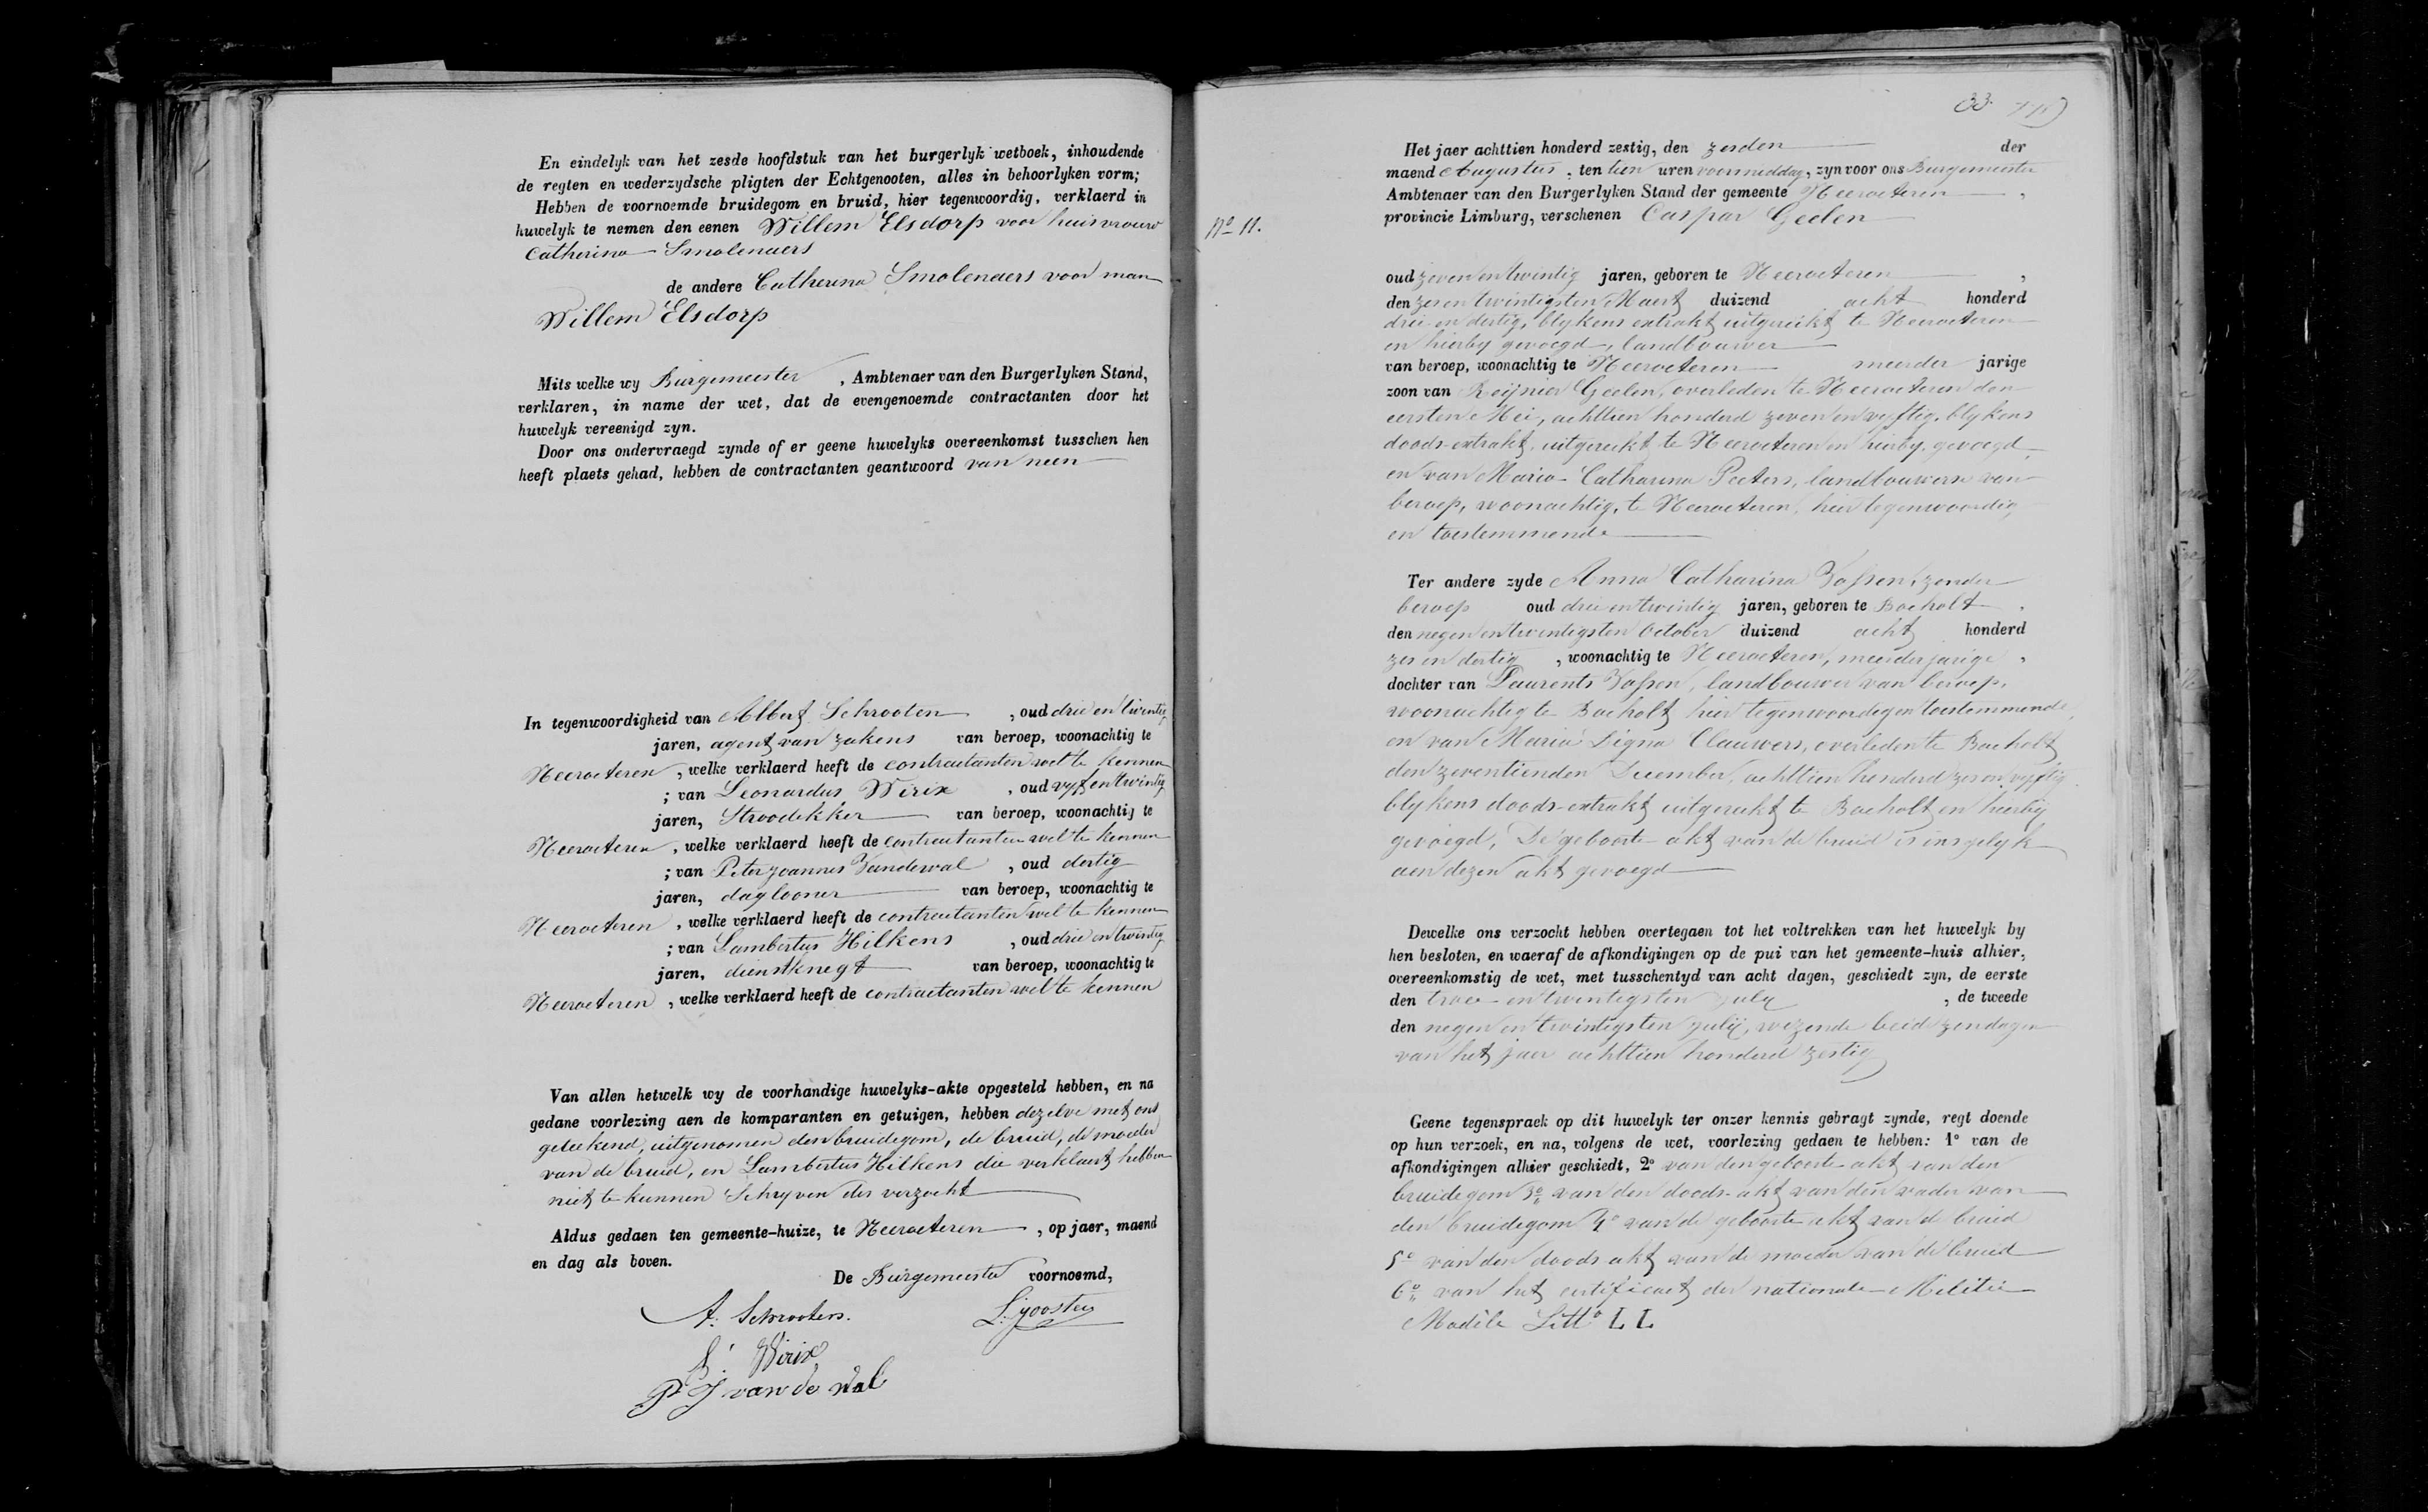 En eindelyk van het zesde hoofdstuk van het burgerlyk wetboek, inhoudende
de regten en wederzydsche pligten der Echtgenooten, alles in behoorlyken vorm;
Hebben de voornoemde bruidegom en bruid, hier tegenwoordig, verklaerd in
huwelyk te nemen den eenen Willem Elsdorp voor huisvrouw
Catherina Smolenaers
de andere Catherina Smolenaers voor man
Willem Elsdorp
Mits welke wy Burgemeester, Ambtenaer van den Burgerlyken Stand,
verklaren, in name der wet, dat de evengenoemde contractanten door het
huwelyk vereenigd zyn.
Door ons ondervraegd zynde of er geene huwelyks overeenkomst tusschen hen
heeft plaets gehad, hebben de contractanten geantwoord van neen
In tegenwoordigheid van Albert Schrooten, oud drie en twintig
jaren, agent van zakens van beroep, woonachtig te
Neeroeteren, welke verklaerd heeft de contractanten wel te kennen
; van Leonardus Wirix, oud vyf en twintig
jaren, Stroodekker van beroep, woonachtig te
Neeroeteren, welke verklaerd heeft de contractanten wel te kennen
; van Peter Joannes Vandewal, oud dertig
jaren, daglooner van beroep, woonachtig te
Neeroeteren, welke verklaerd heeft de contractanten wel te kennen
; van Lambertus Hilkens, oud drie en twintig
jaren, dienstknegt van beroep, woonachtig te
Neeroeteren, welke verklaerd heeft de contractanten wel te kennen
Van allen hetwelk wy de voorhandige huwelyks-akte opgesteld hebben, en na
gedane voorlezing aen de komparanten en getuigen, hebben dezelve met ons
geteekend, uitgenomen den bruidegom, de bruid, de moeder
van de bruid, en Lambertus Hilkens die verklaert hebben
niet te kunnen Schryven des verzocht
Aldus gedaen ten gemeente-huize, te Neeroeteren, op jaer, maend
en dag als boven.
De Burgemeester voornoemd,
A. Schrooten. L. Joosten
L. Wirix
P J van de wal
33
Het jaer achttien honderd zestig, den zesden der
maend Augustus, ten tien uren voormiddag, zyn voor ons Burgemeester
Ambtenaer van den Burgerlyken Stand der gemeente Neeroeteren,
provincie Limburg, verschenen Caspar Geelen
No 11.
oud zeven en twintig jaren, geboren te Neeroeteren,
den zes en twintigsten Maert duizend acht honderd
drie en dertig, blykens extrakt uitgereikt te Neeroeteren
en hierby gevoegd, landbouwer
van beroep, woonachtig te Neeroeteren meerder jarige
zoon van Reijnier Geelen, overleden te Neeroeteren den
eersten Mei, achttien honderd zeven en vyftig, blykens
doods-extrakt, uitgereikt te Neeroeteren en hierby gevoegd,
en van Maria-Catharina Peeters, landbouwerse van
beroep, woonachtig te Neeroeteren, hier tegenwoordig
en toestemmende
Ter andere zyde Anna Catharina Vossen, zonder
beroep oud drie en twintig jaren, geboren te Bocholt,
den negen en twintigsten October duizend acht honderd
zes en dertig, woonachtig te Neeroeteren, meerderjarige,
dochter van Laurents Vossen, landbouwer van beroep,
woonachtig te Bocholt hier tegenwoordig en toestemmende,
en van Maria Digna Clauwers, overleden te Bocholt
den zeventienden December, achttien honderd zes en vyftig
blykens doods-extrakt uitgereikt te Bocholt en hierby
gevoegd, De geboorte-akt van de bruid is insgelyk
aen dezen akt gevoegd
Dewelke ons verzocht hebben overtegaen tot het voltrekken van het huwelyk by
hen besloten, en waeraf de afkondigingen op de pui van het gemeente-huis alhier,
overeenkomstig de wet, met tusschentyd van acht dagen, geschiedt zyn, de eerste
den twee en twintigsten july, de tweede
den negen en twintigsten july, wezende beide zondagen
van het jaer achttien honderd zestig
Geene tegenspraek op dit huwelyk ter onzer kennis gebragt zynde, regt doende
op hun verzoek, en na, volgens de wet, voorlezing gedaen te hebben: 1° van de
afkondigingen alhier geschiedt, 2° van den geboorte-akt van den
bruidegom 3° van den doods-akt van den vader van
den bruidegom 4° van de geboorte akt van de bruid
5° van den doods akt van de moeder van de bruid
6° van het certificaet der nationale Militie
Modèle Litt° LL